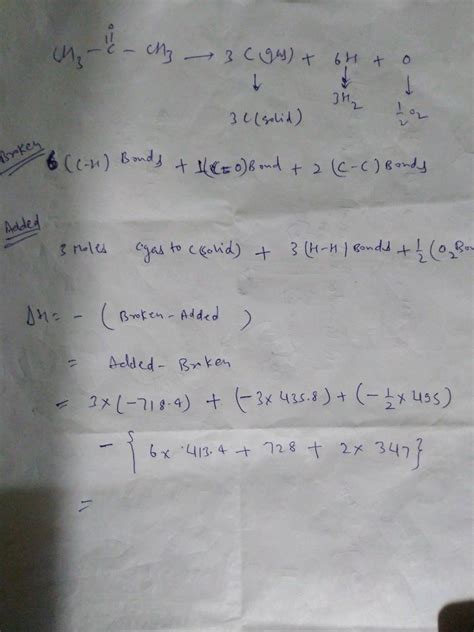 O
CH₃ – C – CH₃ → 3 C(gas) + 6H + O
3C(solid) 3H₂ ½O₂
Broken
6(C-H) Bonds + 1(C=O)Bond + 2 (C-C) Bonds
Added
3 moles Cgas to C(solid) + 3(H-H) Bonds + ½(O₂Bon
ΔH = - (Broken - Added)
= Added - Broken
= 3×(-718.4) + (-3×435.8) + (-½×495)
- {6× 413.4 + 728 + 2× 347}
=